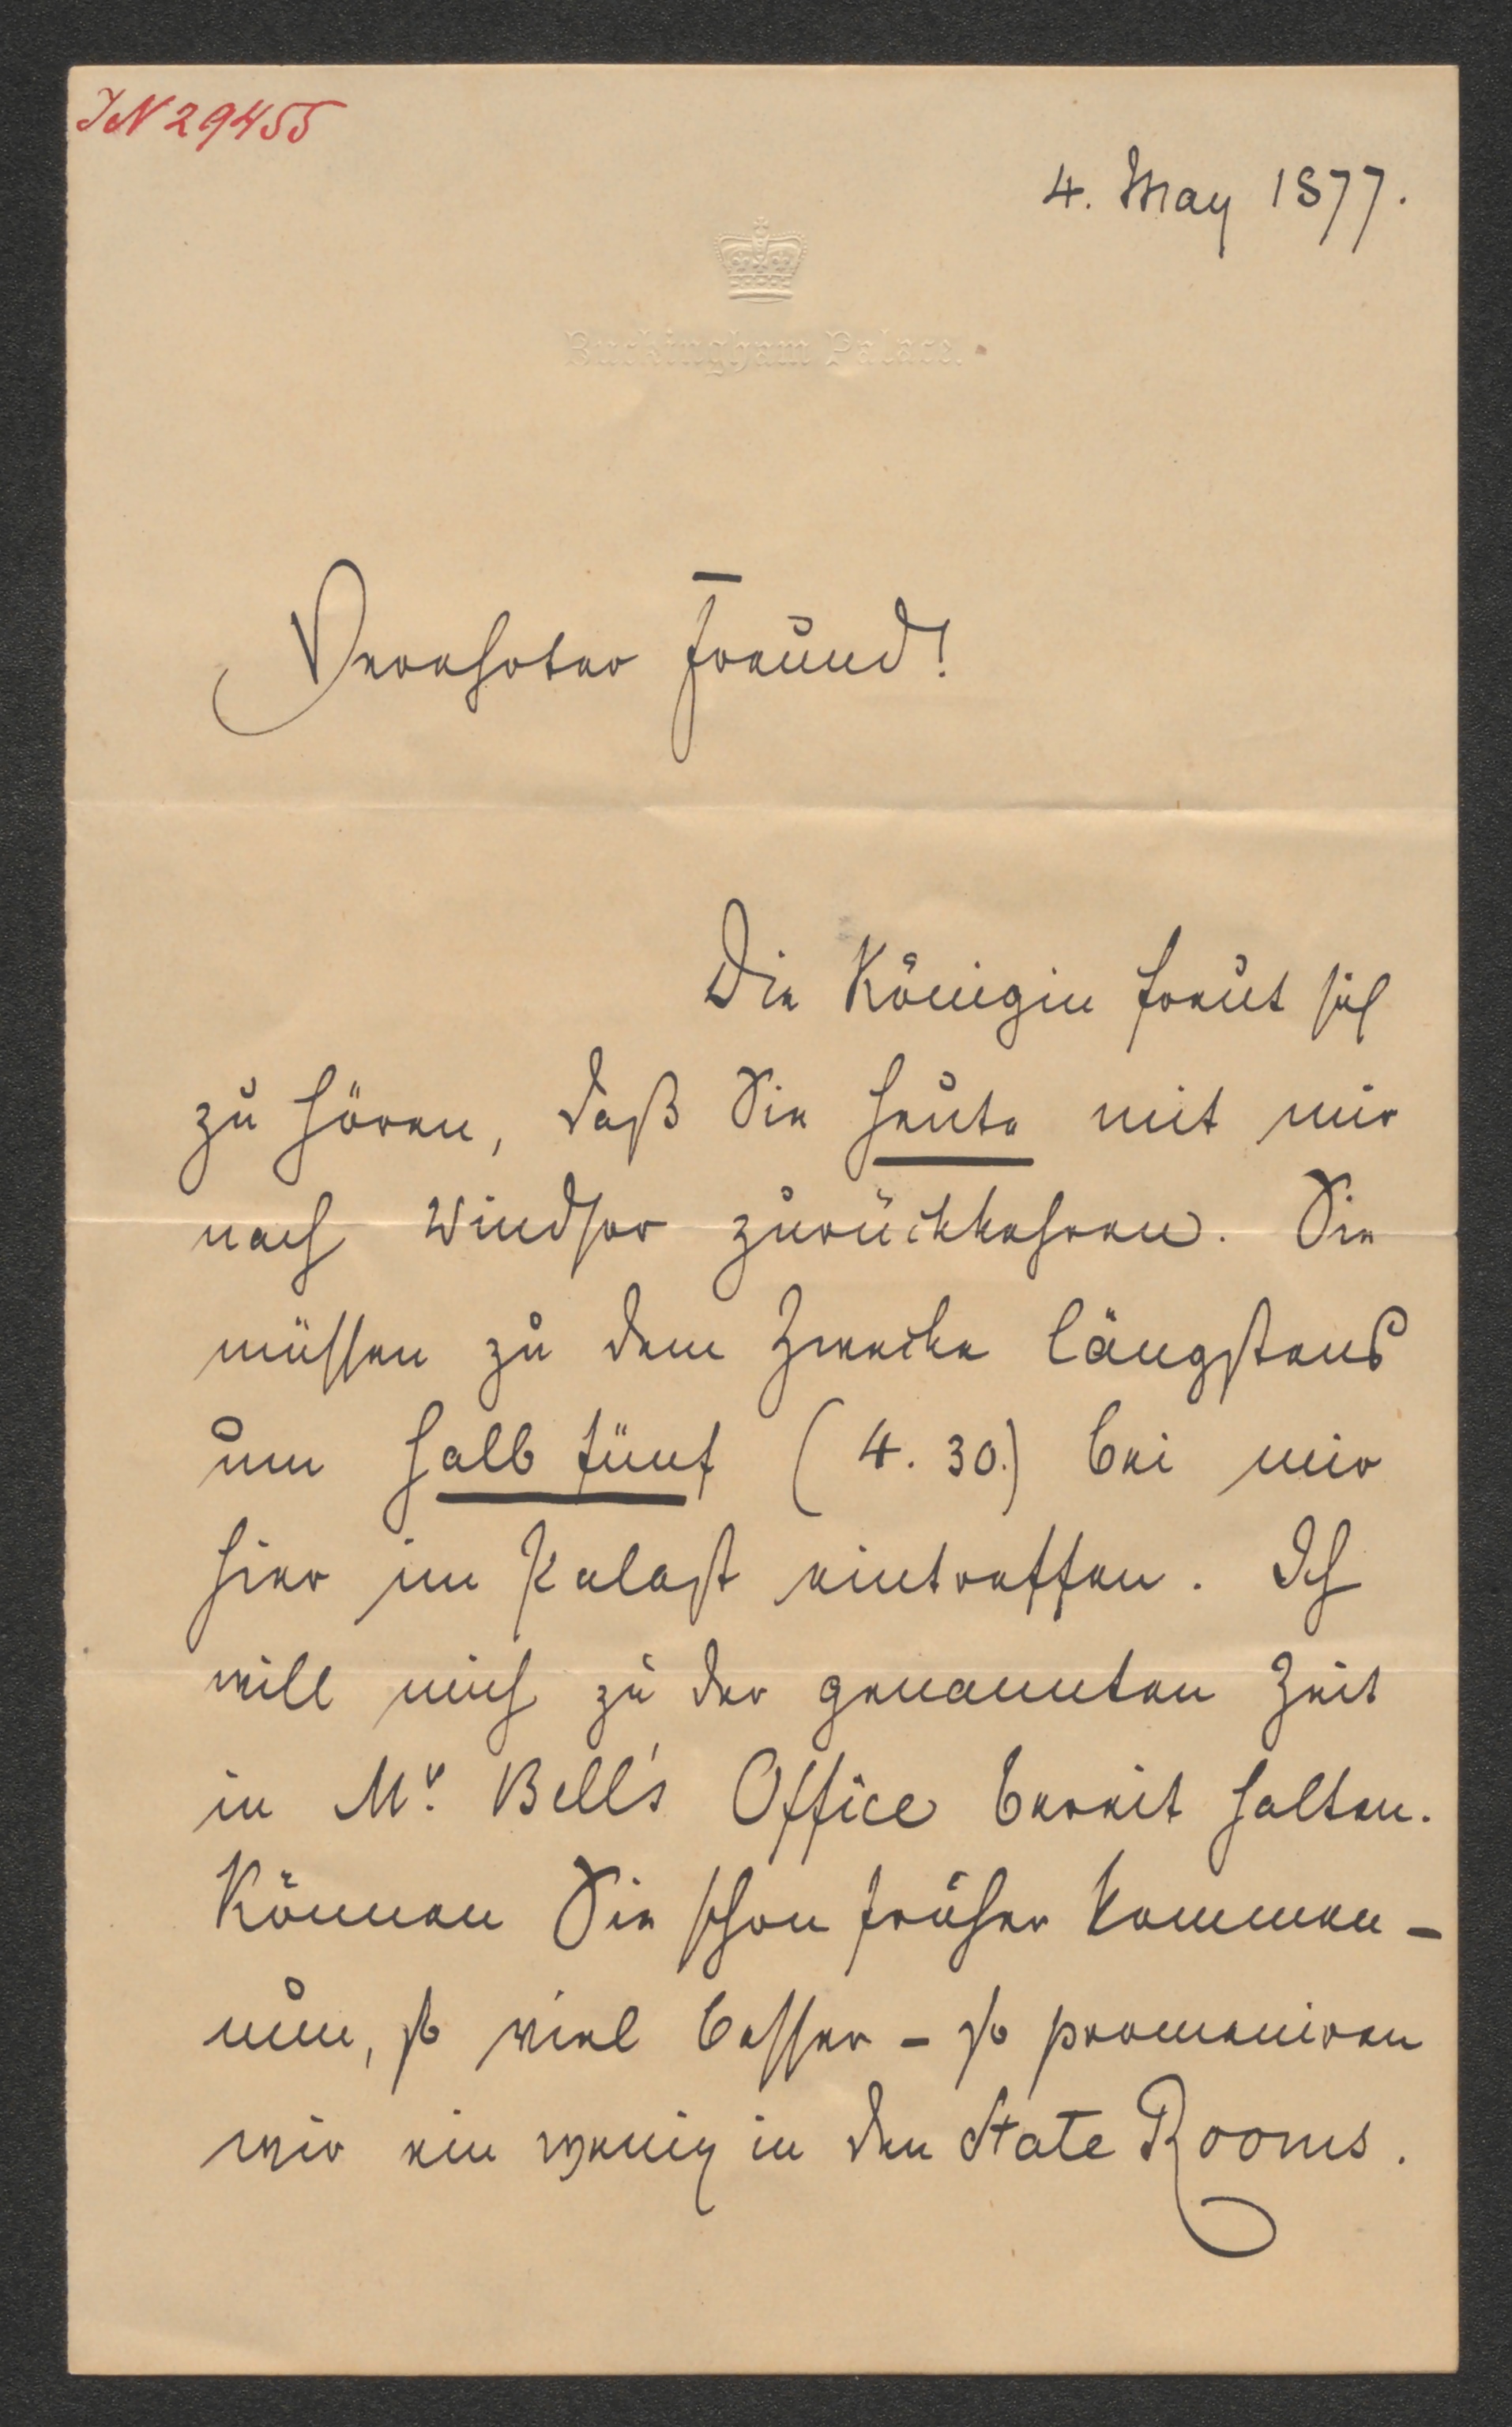 IN 29455
4. May 1877.
Buckingham Palace.
Verehrter Freund!
Die Königin freut sich
zu hören, daß Sie heute mit mir
nach Windsor zurückkehren. Sie
müssen zu dem Zwecke längstens
um halb fünf (4. 30.) bei mir
hier im Palast eintreffen. Ich
will mich zu der genannten Zeit
in Mr. Bell's Office bereit halten.
Können Sie schon früher kommen –
nun, so viel besser – so promeniren
wir ein wenig in den State Rooms.